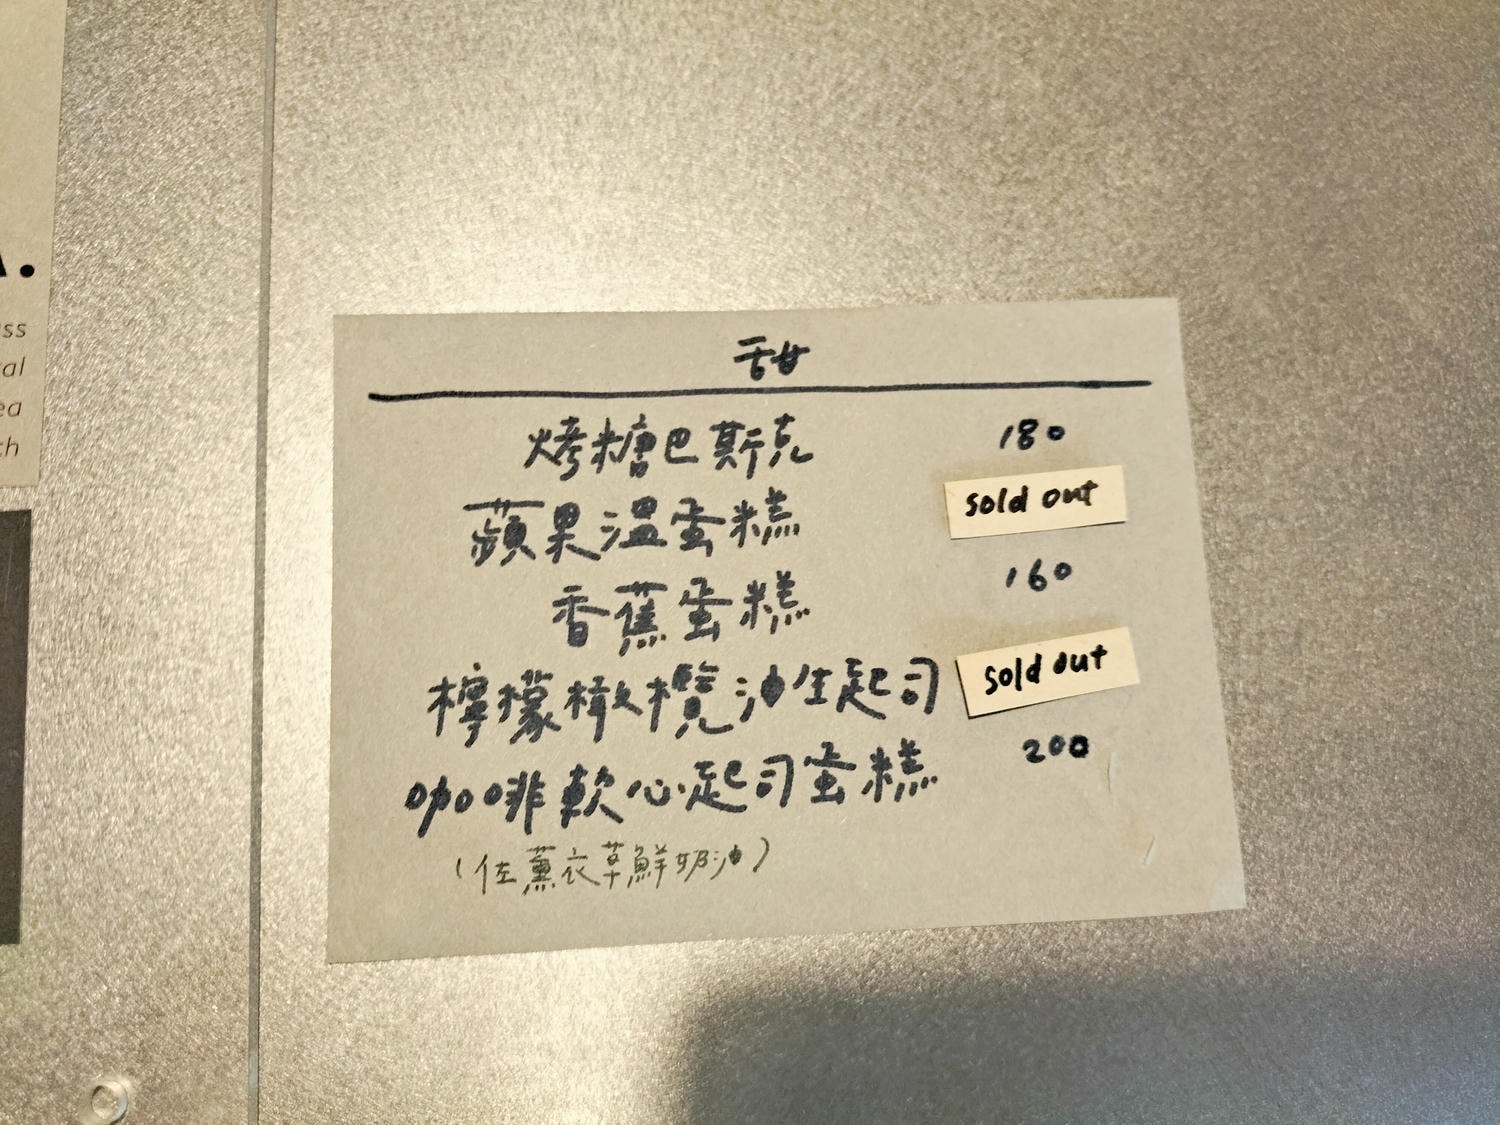 A.
ss
al
ea
ch
甜
烤糖巴斯克 180
蘋果溫蛋糕 sold out
香蕉蛋糕 160
檸檬橄欖油生起司 sold out
咖啡軟心起司蛋糕 200
(佐薰衣草鮮奶油)